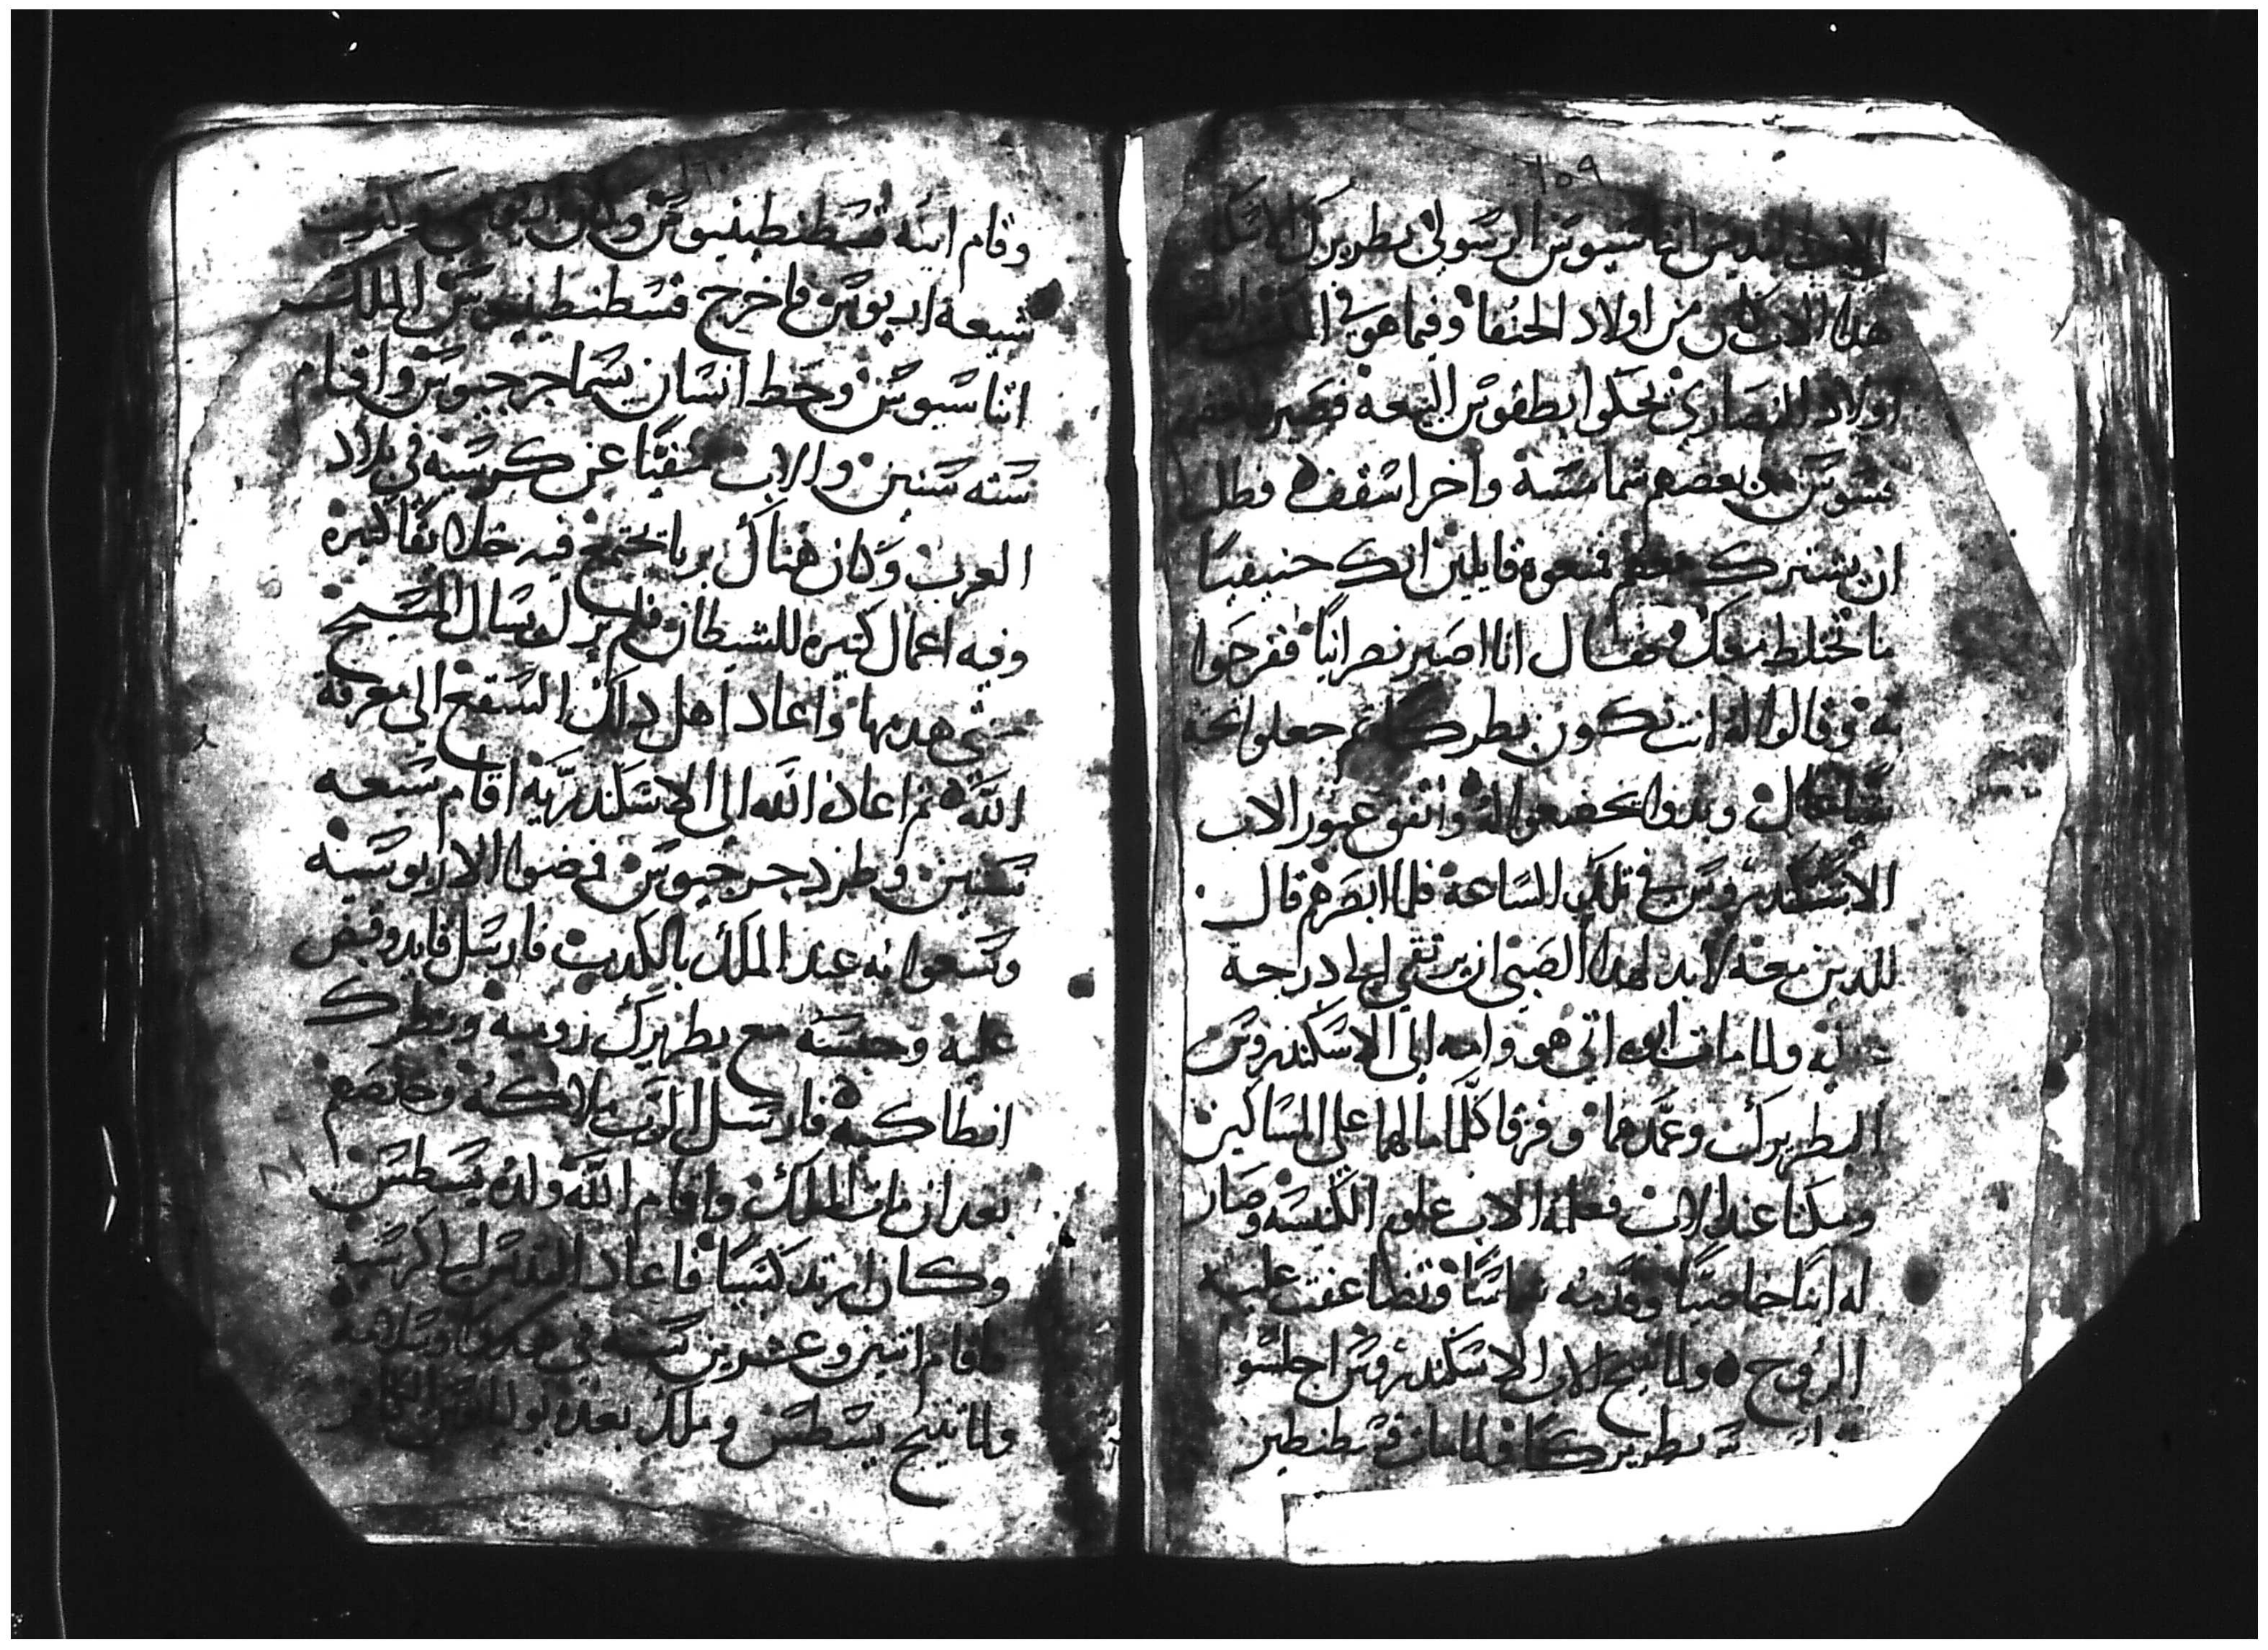 ١٥٩
الاب القديس اثناسيوس الرسولي بطريرك الاسكند
هذا الاب كان من اولاد الحنفا وفيما هو في المكتب
اولاد النصاري يحكوا بطقوس البيعه فصيروا بعضهم
قسوس وبعضهم شمامسة واخر اسقفه فطلب
ان يشترك معهم فمنعوه قايلين انك حنيفيا
ما تختلط معنا فقال انا اصير نصرانياً ففرحوا
به وقالوا له انت تكون بطركا ثم جعلوا تحته
شيا عال وبدوا يخضعوا له واتفق عبور الاب
الاسكندروس في تلك الساعة فلما ابصرهم قال
للدين معه لابد لهدا الصبي ان يرتقي الي دراجة
عليه ولما مات ابوه اتي هو وامه الي الاسكندروس
البطريرك وعمدهما وفرقا كلما لهما علي المساكين
ومكثا عند الاب فعلمه الاب علوم الكنيسه وصار
له ابنا خاصياً وقدمه شماسًا وتضاعفت عليه
الروح ولما تنيح الاب الاسكندروس اجلسوا
بطريركا فلما مات قسطنطين
١٦٠
وقام ابنه قسطنطينوس وكان
شيعه اريوس فاخرج قسطنطينوس الملك
اثناسيوس وحط انسان يسما جرجيوس واقام
سته سنين والاب منفيًا عن كرسيه في بلاد
العرب وكان هناك بربا تجتمع فيه خلايقا كثيره
وفيه اعمال كثيره للشيطان فلم يزل يسال المسيح
حتي هدمها واعاد اهل داك السقع الي معرفة
الله ثم اعاده الله الي الاسكندرية اقام سبعه
سنين وطرد جرجيوس فمضوا الاريوسيه
وسعوا به عند الملك بالكدب فارسل قايد وقبض
عليه وحبسه مع بطريرك روميه وبطرك
انطاكيه فارسل الرب ملاكه وخلصهم
بعد ان مات الملك واقام الله ولده يسطس
وكان ارتدكسيا فاعاد القديس الي كرسيه
فاقام اتنين وعشرين سنه في هدوًا وسلامة
ولما تنيح يسطس وملك بعده يوليانوس الكافر